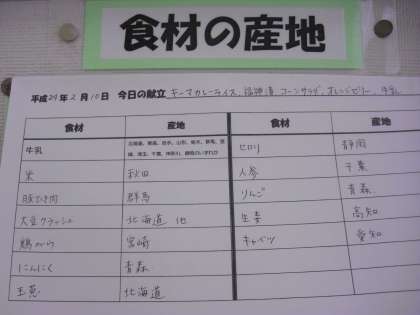 食材の産地
平成24年2月10日 今日の献立 キーマカレーライス、福神漬、コーンサラダ、オレンジゼリー、牛乳
食材 産地 食材 産地
牛乳 北海道、青森、岩手、山形、栃木、群馬、茨城、埼玉、千葉、神奈川、静岡のいずれか セロリ 静岡
米 秋田 人参 千葉
豚ひき肉 群馬 りんご 青森
大豆クラッシュ 北海道 他 生姜 高知
鶏がら 宮崎 キャベツ 愛知
にんにく 青森
玉葱 北海道